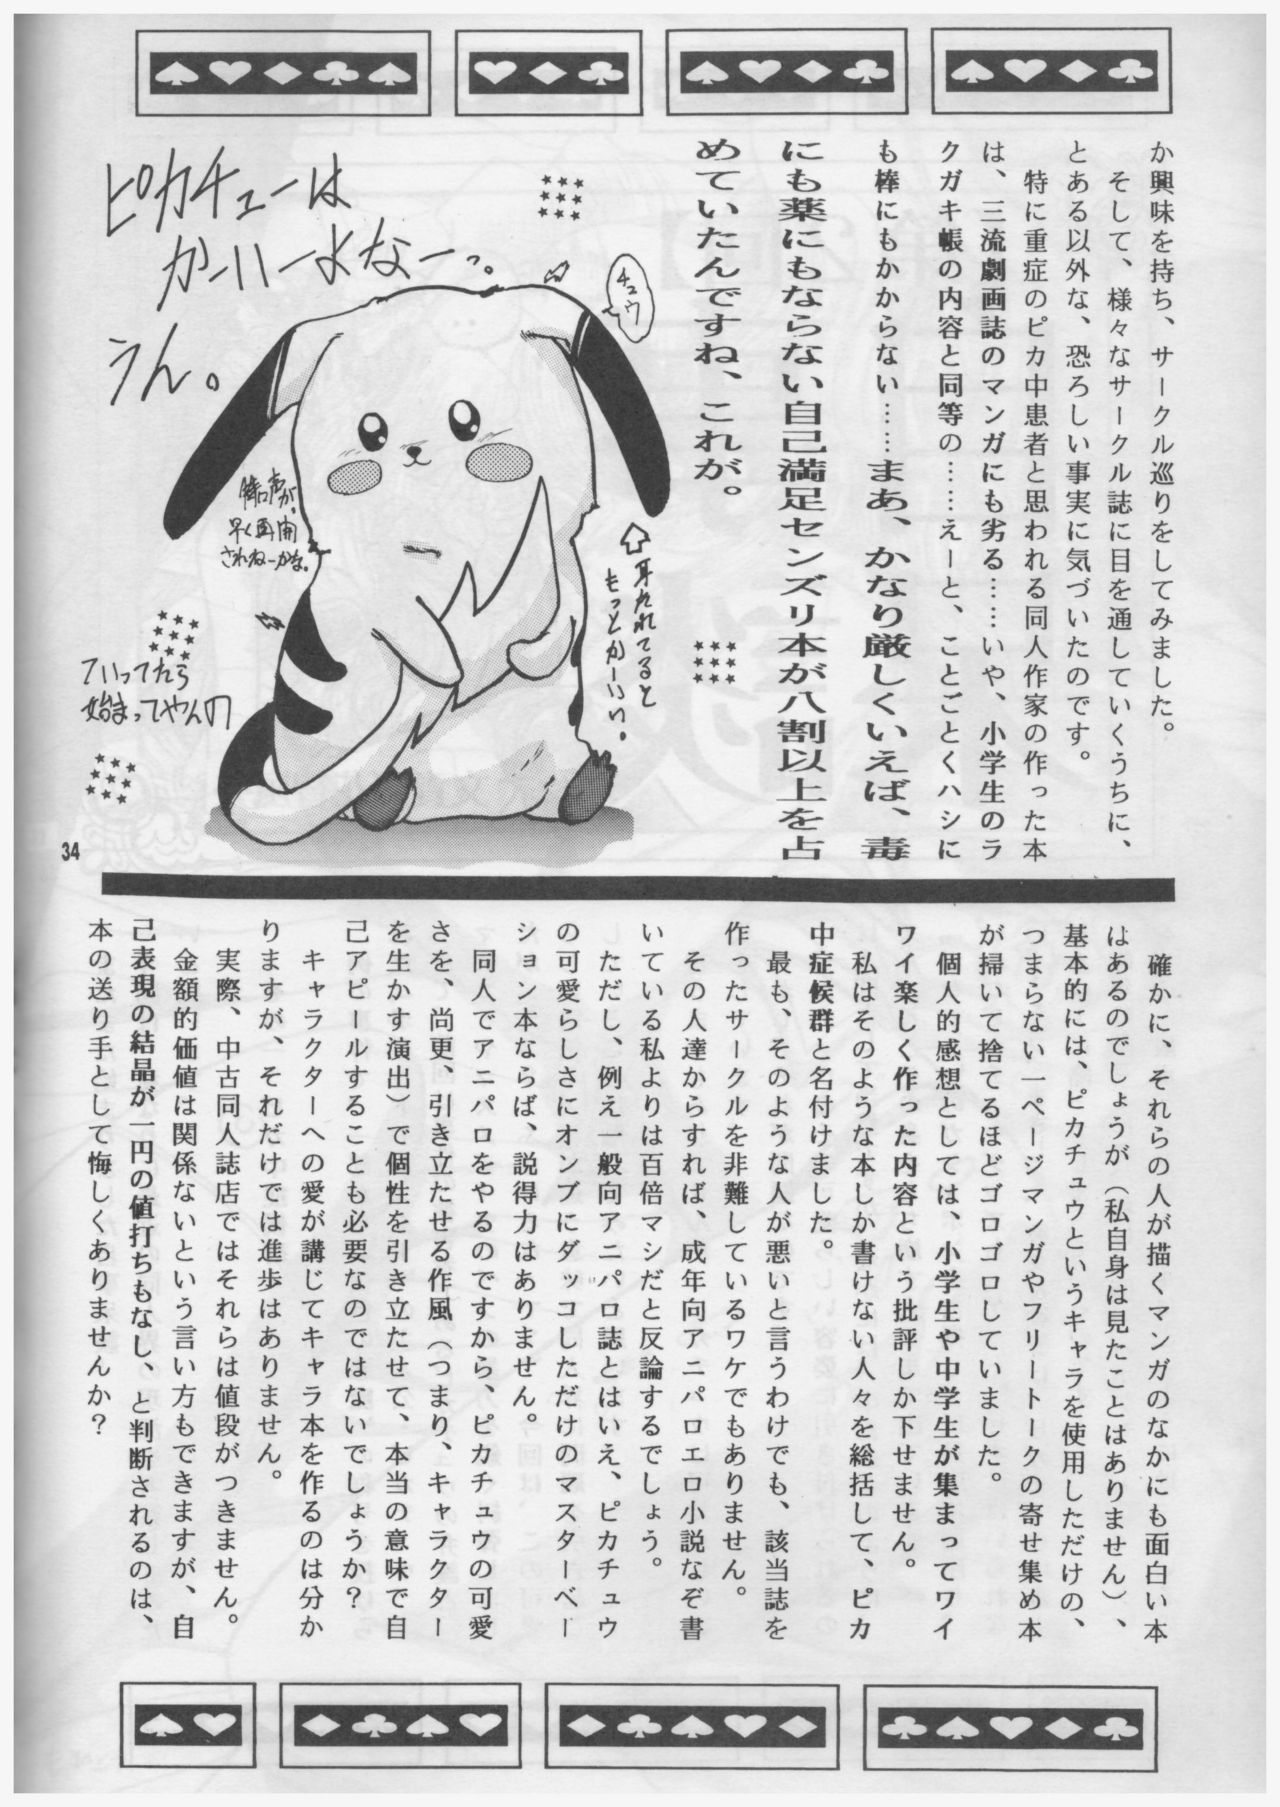 か興味を持ち、サークル巡りをしてみました。
そして、様々なサークル誌に目を通していくうちに、
とある以外な、恐ろしい事実に気づいたのです。
特に重症のピカ中患者と思われる同人作家の作った本
は、三流劇画誌のマンガにも劣る……いや、小学生のラ
クガキ帳の内容と同等の……えーと、ことごとくハシに
も棒にもかからない……まあ、かなり厳しくいえば、毒
にも薬にもならない自己満足センズリ本が八割以上を占
めていたんですね、これが。
チュウ
ピカチューは
かーいーよなーっ。
うん。
早く再開
されねーかな。
耳たれてると
もっとかーいい。
始まってやんの
34
確かに、それらの人が描くマンガのなかにも面白い本
はあるのでしょうが（私自身は見たことはありません）、
基本的には、ピカチュウというキャラを使用しただけの、
つまらない一ページマンガやフリートークの寄せ集め本
が掃いて捨てるほどゴロゴロしていました。
個人的感想としては、小学生や中学生が集まってワイ
ワイ楽しく作った内容という批評しか下せません。
私はそのような本しか書けない人々を総括して、ピカ
中症候群と名付けました。
最も、そのような人が悪いと言うわけでも、該当誌を
作ったサークルを非難しているワケでもありません。
その人達からすれば、成年向アニパロエロ小説なぞ書
いている私よりは百倍マシだと反論するでしょう。
ただし、例え一般向アニパロ誌とはいえ、ピカチュウ
の可愛らしさにオンブにダッコしただけのマスターベー
ション本ならば、説得力はありません。
同人でアニパロをやるのですから、ピカチュウの可愛
さを、尚更、引き立たせる作風（つまり、キャラクター
を生かす演出）で個性を引き立たせて、本当の意味で自
己アピールすることも必要なのではないでしょうか？
キャラクターへの愛が講じてキャラ本を作るのは分か
りますが、それだけでは進歩はありません。
実際、中古同人誌店ではそれらは値段がつきません。
金額的価値は関係ないという言い方もできますが、自
己表現の結晶が一円の値打ちもなし、と判断されるのは、
本の送り手として悔しくありませんか？